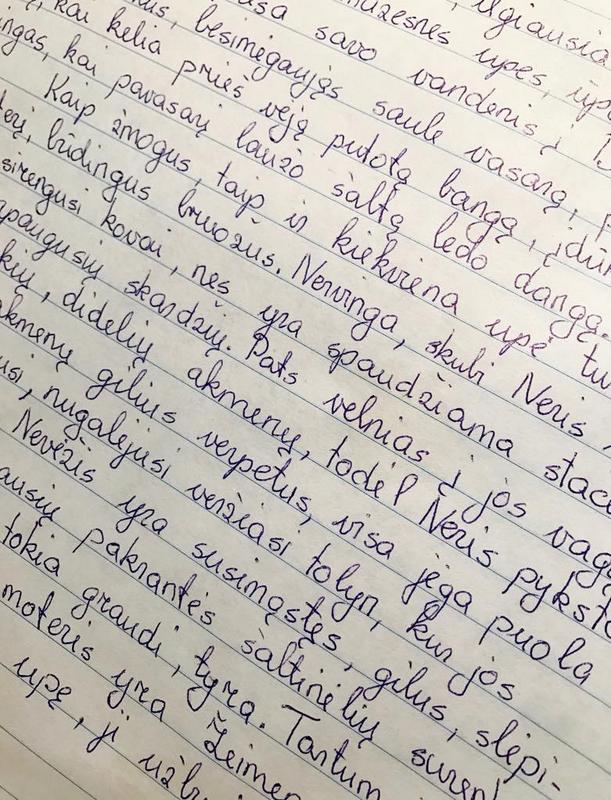 ilgiausia
mažesnes upes,
savo vandenis į
besimėgaująs saule vasarą,
kai kelia prieš vėją putotą bangą,
ingas, kai pavasarį laužo šaltą ledo dangą.
Kaip žmogus, taip ir kiekviena upė tu
terį, būdingus bruožus. Nervinga, skubi Neris
sirengusi kovai, nes yra spaudžiama stač
apaugusių skardžių. Pats velnias į jos vagą
kių, didelių akmenų, todėl Neris pyksta
akmenų gilius verpetus, visa jėga puola
usi, nugalėjusi veržiasi tolyn, kur jos
Nevėžis yra susimąstęs, gilus, slėpi-
ausių pakrantės šaltinėlių suren
tokia graudi, tyra. Tartum
moteris yra Žeimen
upę, ji